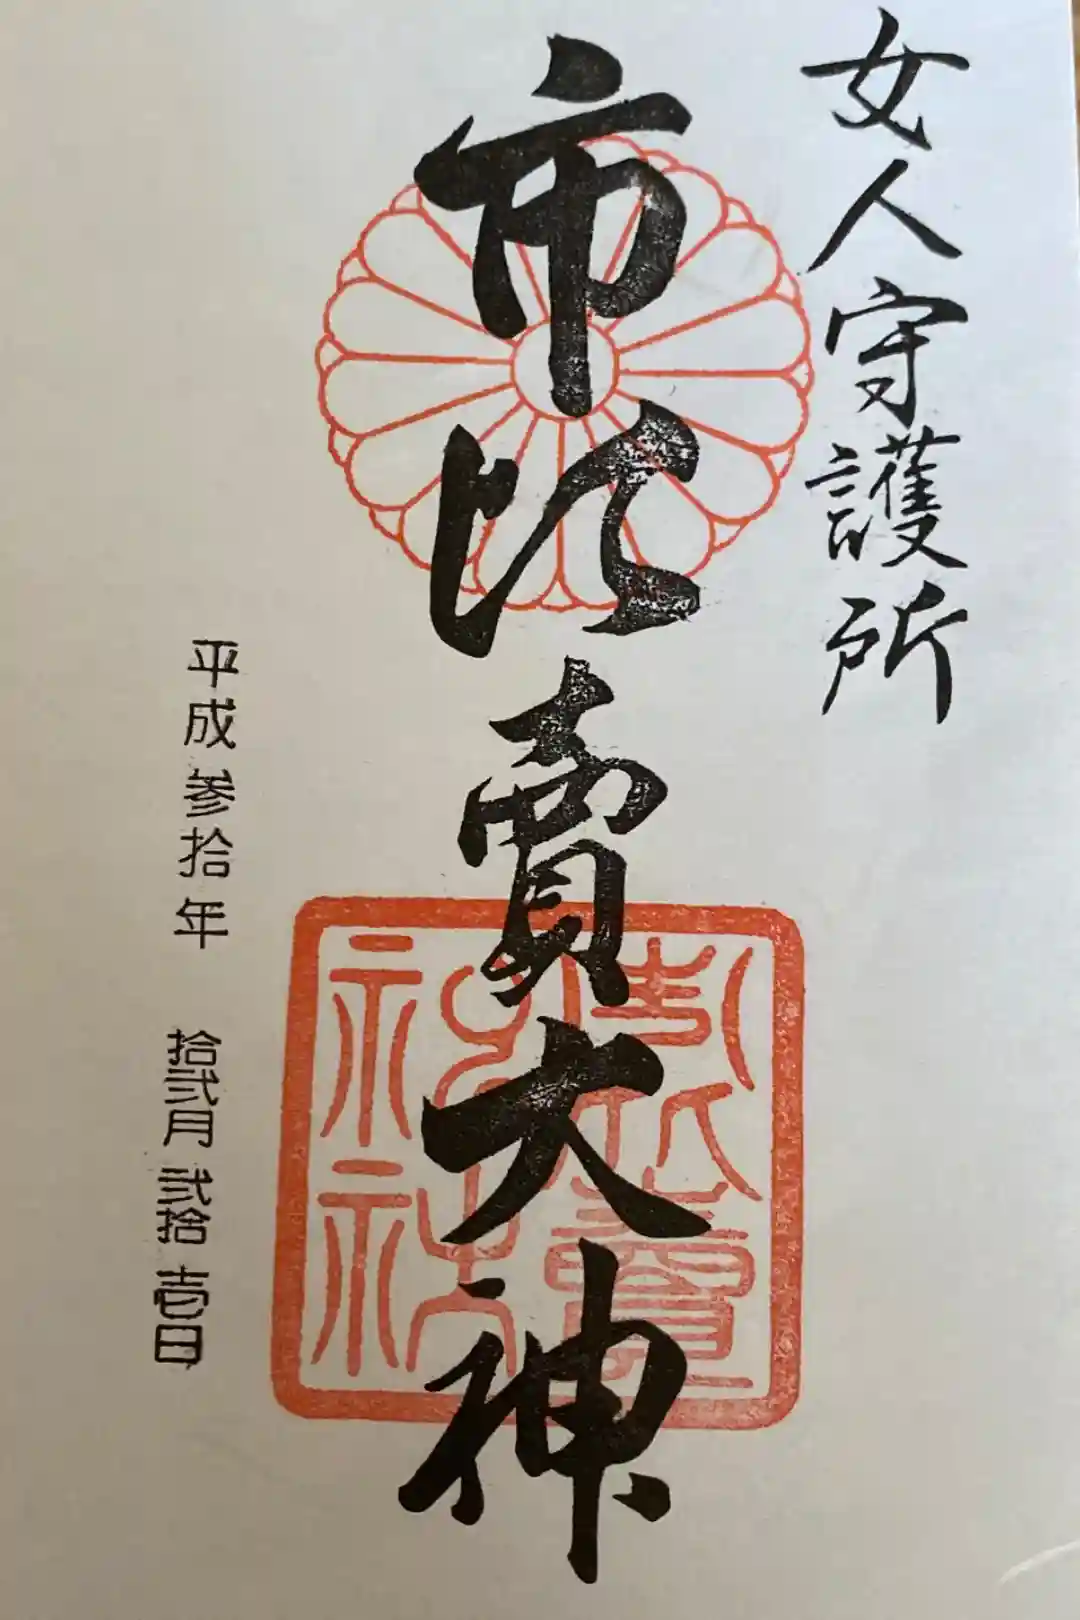 女人守護所
市比賣大神
平成参拾年 拾弐月弐拾壱日